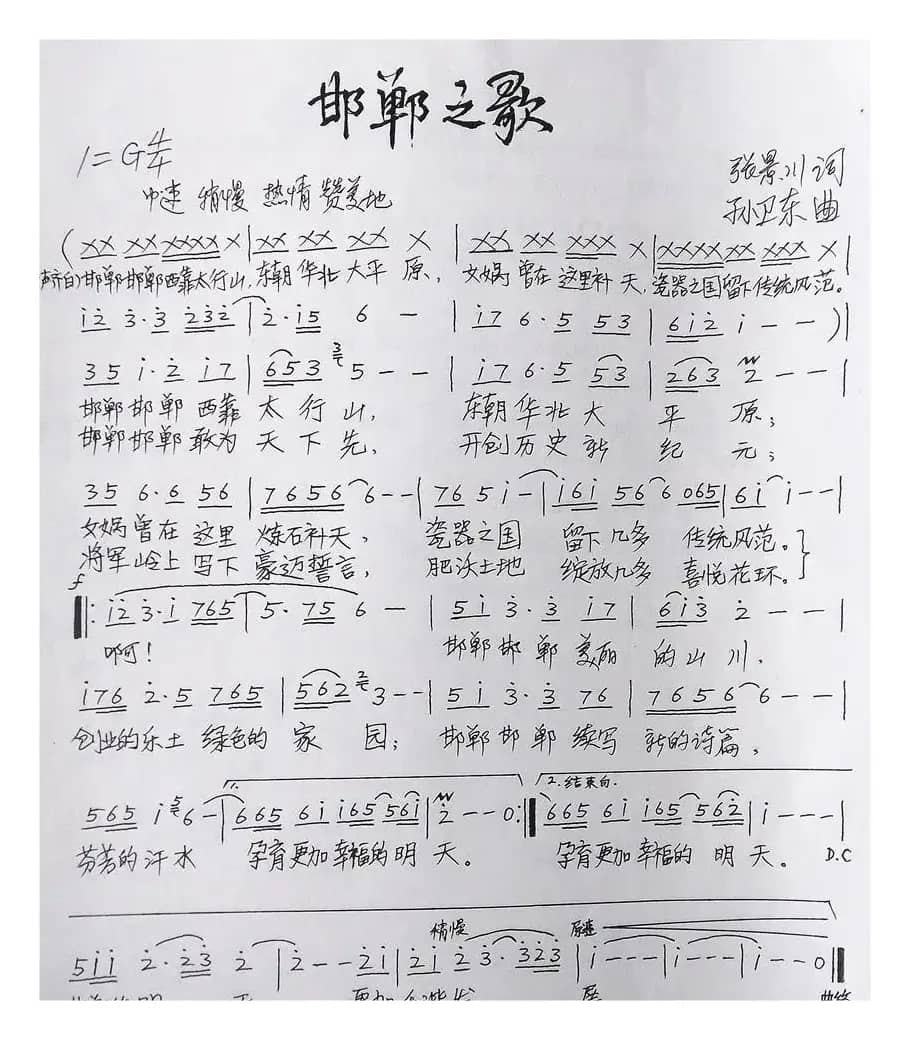 邯郸之歌
1=G 4/4
中速 稍慢 热情 赞美地
张景川 词
孙卫东 曲
(XX XX XXXX X | XX XX XX X | XX XX XXX X | XXXX XX XXX X |
(齐白)邯郸邯郸西靠太行山,东朝华北大平原,女娲曾在这里补天,瓷器之国留下传统风范。
i2 3·3 232 | 2·i5 6 - | i7 6·5 53 | 6i2 i - - ) |
35 i·2 i7 | 653 5 - - | i7 6·5 53 | 263 2 - - |
邯郸邯郸西靠太行山, 东朝华北大平原;
邯郸邯郸敢为天下先, 开创历史新纪元;
35 6·6 56 | 7656 6 - - | 76 5 i - | i6i 56 6 065 | 6i i - - |
女娲曾在这里炼石补天, 瓷器之国留下几多传统风范。
将军岭上写下豪迈誓言, 肥沃土地绽放几多喜悦花环。
f
‖: i2 3·i 765 | 5·75 6 - | 5i 3·3 i7 | 6i3 2 - - |
啊! 邯郸邯郸美丽的山川,
i76 2·5 765 | 562 3 - - | 5i 3·3 76 | 7656 6 - - |
创业的乐土绿色的家园; 邯郸邯郸续写新的诗篇,
1. 2.结束句.
565 i 6 - | 665 6i i65 56i | 2 - - 0 :‖ 665 6i i65 562 | i - - - |
芬芳的汗水 孕育更加幸福的明天。 孕育更加幸福的明天。 D.C
稍慢 原速
5ii 2·23 2 | 2 - - 2i | 2i 2 3·323 | i - - - | i - - - | i - - 0 ‖